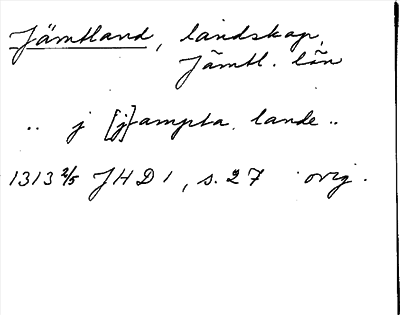 Jämtland, landskap,
Jämtl. län
.. j [j]ampta lande ..
1313 2/5 JHD 1, s. 27 orig.